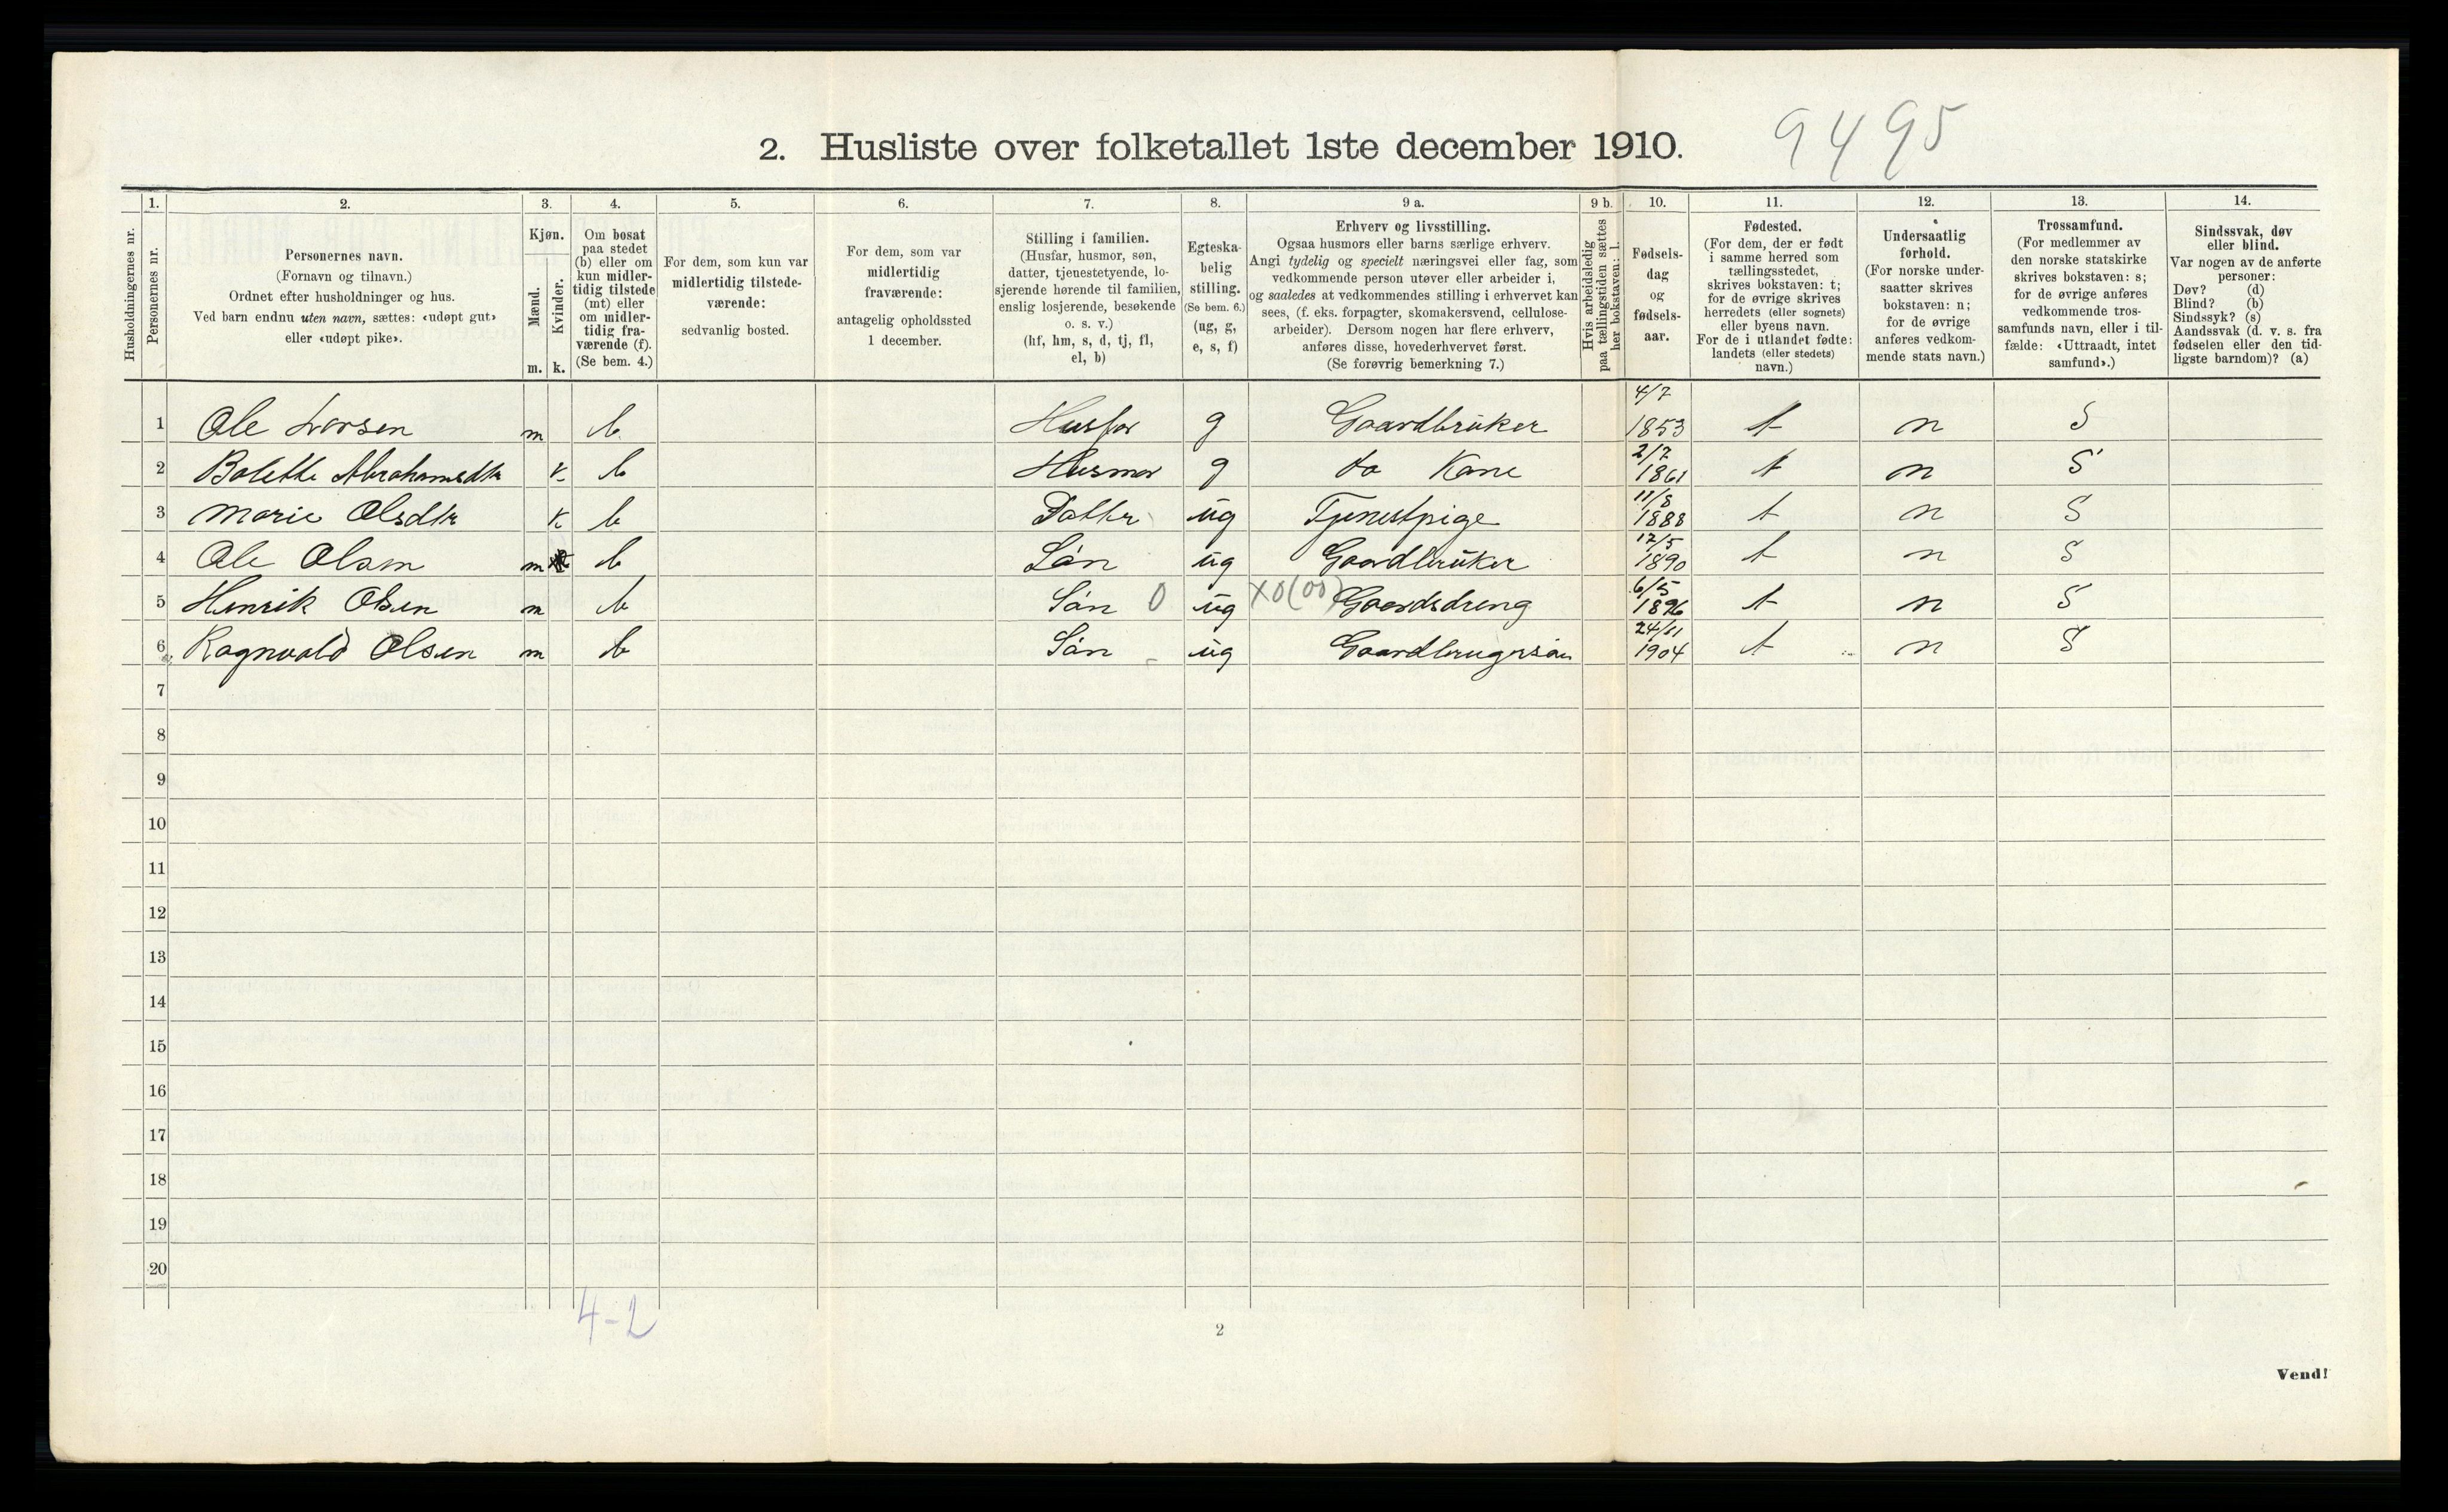 9495
2. Husliste over folketallet 1ste december 1910.
Husholdningernes nr.
1.
Personernes nr.
2.
Personernes navn.
(Fornavn og tilnavn.)
Ordnet efter husholdninger og hus.
Ved barn endnu uten navn, sættes: «udøpt gut»
eller «udøpt pike».
3.
Kjøn.
Mænd.
Kvinder.
m. k.
4.
Om bosat
paa stedet
(b) eller om
kun midler-
tidig tilstede
(mt) eller
om midler-
tidig fra-
værende (f).
(Se bem. 4.)
5.
For dem, som kun var
midlertidig tilstede-
værende:
sedvanlig bosted.
6.
For dem, som var
midlertidig
fraværende:
antagelig opholdssted
1 december.
7.
Stilling i familien.
(Husfar, husmor, søn,
datter, tjenestetyende, lo-
sjerende hørende til familien,
enslig losjerende, besøkende
o. s. v.)
(hf, hm, s, d, tj, fl,
el, b)
8.
Egteska-
belig
stilling.
(Se bem. 6.)
(ug, g,
e, s, f)
9 a.
Erhverv og livsstilling.
Ogsaa husmors eller barns særlige erhverv.
Angi tydelig og specielt næringsvei eller fag, som
vedkommende person utøver eller arbeider i,
og saaledes at vedkommendes stilling i erhvervet kan
sees, (f. eks. forpagter, skomakersvend, cellulose-
arbeider). Dersom nogen har flere erhverv,
anføres disse, hovederhvervet først.
(Se forøvrig bemerkning 7.)
9 b.
Hvis arbeidsledig
paa tællingstiden sættes
her bokstaven: l.
10.
Fødsels-
dag
og
fødsels-
aar.
11.
Fødested.
(For dem, der er født
i samme herred som
tællingsstedet,
skrives bokstaven: t;
for de øvrige skrives
herredets (eller sognets)
eller byens navn.
For de i utlandet fødte:
landets (eller stedets)
navn.)
12.
Undersaatlig
forhold.
(For norske under-
saatter skrives
bokstaven: n;
for de øvrige
anføres vedkom-
mende stats navn.)
13.
Trossamfund.
(For medlemmer av
den norske statskirke
skrives bokstaven: s;
for de øvrige anføres
vedkommende tros-
samfunds navn, eller i til-
fælde: «Uttraadt, intet
samfund».)
14.
Sindssvak, døv
eller blind.
Var nogen av de anførte
personer:
Døv? (d)
Blind? (b)
Sindssyk? (s)
Aandssvak (d. v. s. fra
fødselen eller den tid-
ligste barndom)? (a)
1 Ole Larsen m b Husfar g Gaardbruker 4/7 1853 t n S
2 Bolette Abrahamsdtr k b Husmor g do Kone 2/7 1861 t n S
3 Marie Olsdtr k b Datter ug Tjenestpige 11/8 1888 t n S
4 Ole Olsen m b Søn ug Gaardbruker 12/5 1890 t n S
5 Henrik Olsen m b Søn 0 ug x0(00) Gaardsdreng 6/5 1896 t n S
6 Ragnvald Olsen m b Søn ug Gaardbrugersøn 24/11 1904 t n S
7
8
9
10
11
12
13
14
15
16
17
18
19
20
4-2
2
Vend!